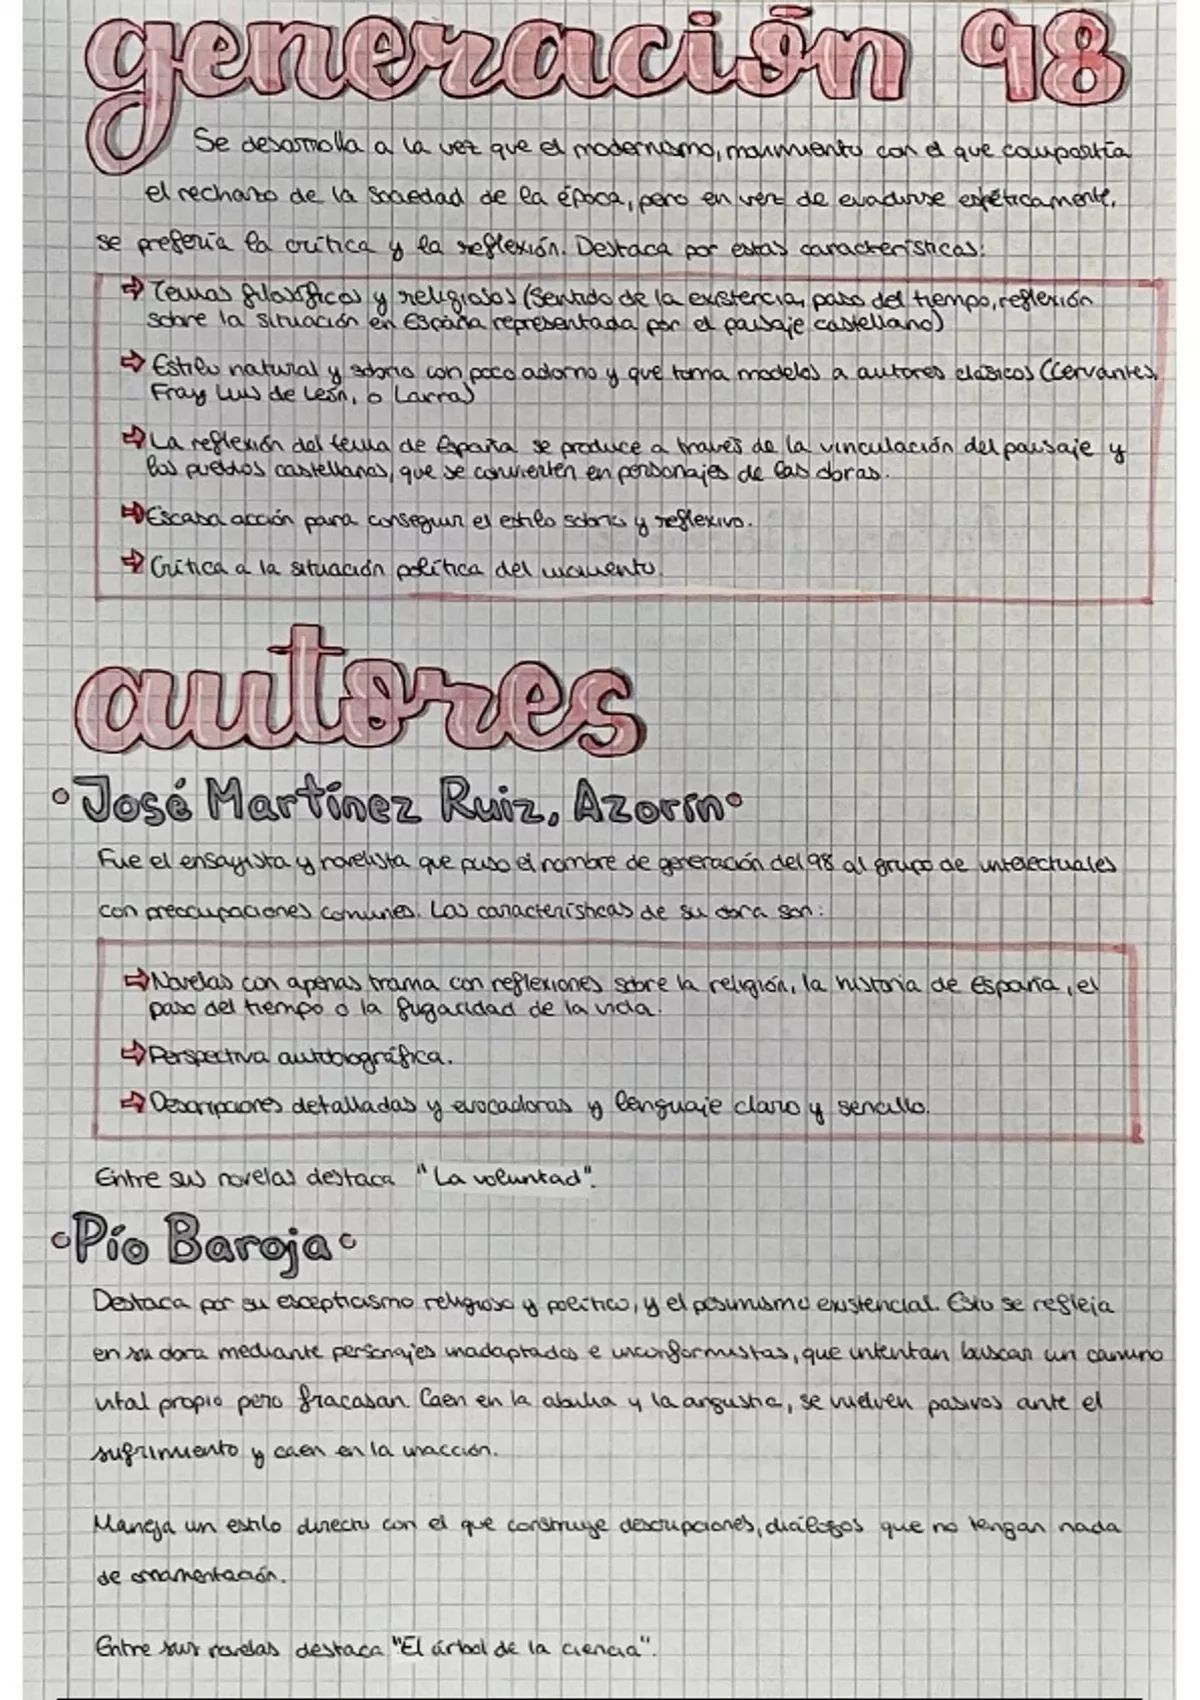 generación 98
Se desarrolla a la vez que el modernismo, movimiento con el que compartía
el rechazo de la sociedad de la época, pero en vez de evadirse estéticamente,
se prefería la crítica y la reflexión. Destaca por estas características:
⇨ Temas filosóficos y religiosos (Sentido de la existencia, paso del tiempo, reflexión
sobre la situación en España representada por el paisaje castellano)
⇨ Estilo natural y sobrio con poco adorno y que toma modelos a autores clásicos (Cervantes,
Fray Luis de León, o Larra)
⇨ La reflexión del tema de España se produce a través de la vinculación del paisaje y
los pueblos castellanos, que se convierten en personajes de las obras.
⇨ Escasa acción para conseguir el estilo sobrio y reflexivo.
⇨ Crítica a la situación política del momento.
autores
•José Martínez Ruiz, Azorín•
Fue el ensayista y novelista que puso el nombre de generación del 98 al grupo de intelectuales
con preocupaciones comunes. Las características de su obra son:
⇨ Novelas con apenas trama con reflexiones sobre la religión, la historia de España, el
paso del tiempo o la fugacidad de la vida.
⇨ Perspectiva autobiográfica.
⇨ Descripciones detalladas y evocadoras y lenguaje claro y sencillo.
Entre sus novelas destaca "La voluntad".
•Pío Baroja•
Destaca por su escepticismo religioso y político, y el pesimismo existencial. Esto se refleja
en su obra mediante personajes inadaptados e inconformistas, que intentan buscar un camino
vital propio pero fracasan. Caen en la abulia y la angustia, se vuelven pasivos ante el
sufrimiento y caen en la inacción.
Maneja un estilo directo con el que construye descripciones, diálogos que no tengan nada
de ornamentación.
Entre sus novelas destaca "El árbol de la ciencia".